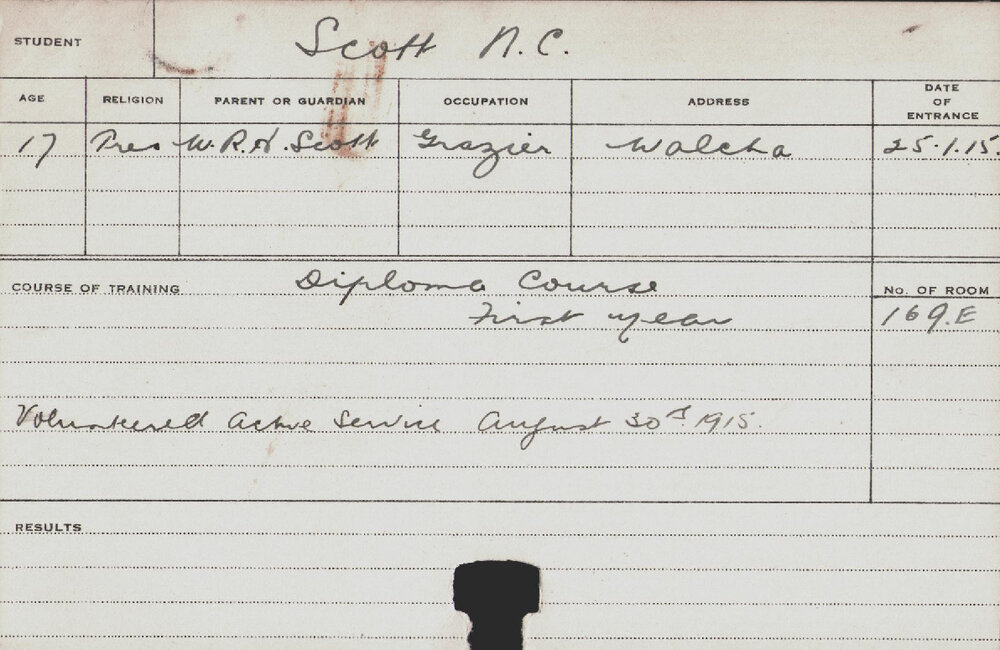 STUDENT Scott N.C.
AGE RELIGION PARENT OR GUARDIAN OCCUPATION ADDRESS DATE OF ENTRANCE
17 Pres W.R.H. Scott Grazier Walcha 25.1.15.
COURSE OF TRAINING Diploma Course No. OF ROOM
First year 169.E
Volunteered active service August 30th 1915.
RESULTS